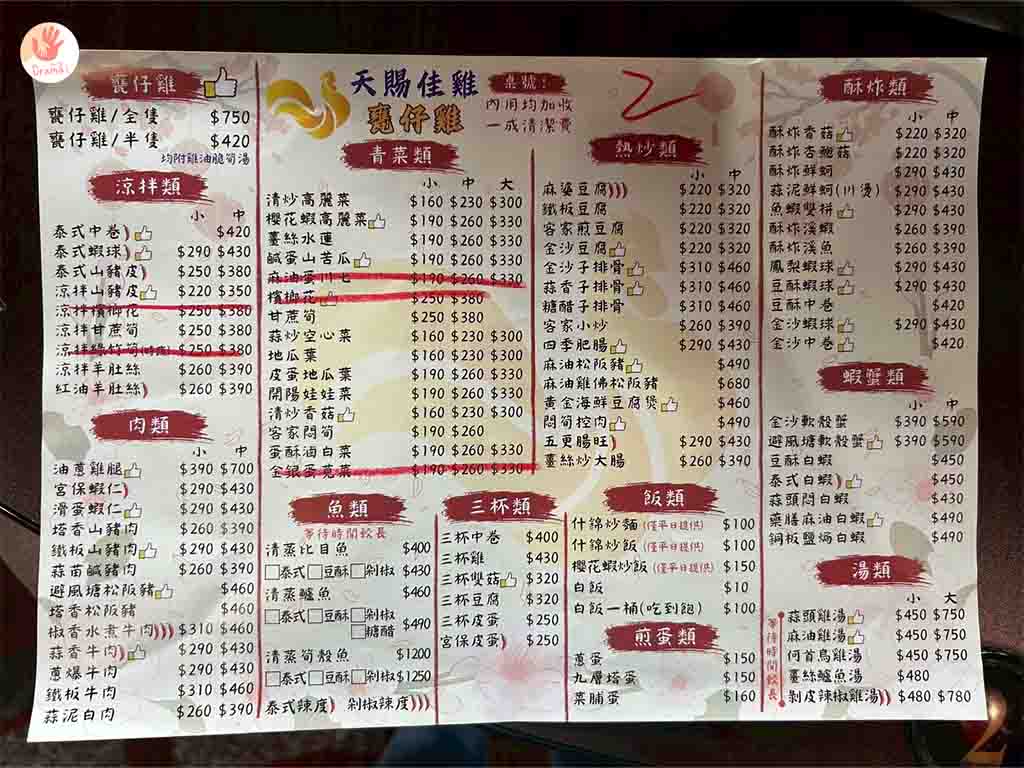 Drama
甕仔雞
甕仔雞/全隻 $750
甕仔雞/半隻 $420
均附雞油脆筍湯
涼拌類
小 中
泰式中卷 $420
泰式蝦球 $290 $430
泰式山豬皮 $250 $380
涼拌山豬皮 $220 $350
涼拌檳榔花 $250 $380
涼拌甘蔗筍 $250 $380
涼拌綠竹筍 $250 $380
涼拌羊肚絲 $260 $390
紅油羊肚絲 $260 $390
肉類
小 中
油蔥雞腿 $390 $700
宮保蝦仁 $290 $430
滑蛋蝦仁 $290 $430
塔香山豬肉 $260 $390
鐵板山豬肉 $290 $430
蒜苗鹹豬肉 $260 $390
避風塘松阪豬 $460
塔香松阪豬 $460
椒香水煮牛肉 $310 $460
蒜香牛肉 $290 $430
蔥爆牛肉 $290 $430
鐵板牛肉 $310 $460
蒜泥白肉 $260 $390
天賜佳雞
甕仔雞
桌號:
2
內用均加收
一成清潔費
青菜類
小 中 大
清炒高麗菜 $160 $230 $300
櫻花蝦高麗菜 $190 $260 $330
薑絲水蓮 $190 $260 $330
鹹蛋山苦瓜 $190 $260 $330
麻油蛋川七 $190 $260 $330
檳榔花 $250 $380
甘蔗筍 $250 $380
蒜炒空心菜 $160 $230 $300
地瓜葉 $160 $230 $300
皮蛋地瓜葉 $190 $260 $330
開陽娃娃菜 $190 $260 $330
清炒香菇 $160 $230 $300
客家悶筍 $190 $260
蛋酥滷白菜 $190 $260 $330
金銀蛋莧菜 $190 $260 $330
熱炒類
小 中
麻婆豆腐 $220 $320
鐵板豆腐 $220 $320
客家煎豆腐 $220 $320
金沙豆腐 $220 $320
金沙子排骨 $310 $460
蒜香子排骨 $310 $460
糖醋子排骨 $310 $460
客家小炒 $260 $390
四季肥腸 $290 $430
麻油松阪豬 $490
麻油雞佛松阪豬 $680
黃金海鮮豆腐煲 $460
悶筍控肉 $490
五更腸旺 $290 $430
薑絲炒大腸 $260 $390
魚類
等待時間較長
清蒸比目魚 $400
泰式 豆酥 剁椒 $430
清蒸鱸魚 $460
泰式 豆酥 剁椒
糖醋 $490
清蒸筍殼魚 $1200
泰式 豆酥 剁椒 $1250
泰式辣度) 剁椒辣度))))
三杯類
三杯中卷 $400
三杯雞 $430
三杯雙菇 $320
三杯豆腐 $320
三杯皮蛋 $250
宮保皮蛋 $250
飯類
什錦炒麵(僅平日提供) $100
什錦炒飯(僅平日提供) $100
櫻花蝦炒飯(僅平日提供) $150
白飯 $10
白飯一桶(吃到飽) $100
煎蛋類
蔥蛋 $150
九層塔蛋 $150
菜脯蛋 $160
酥炸類
小 中
酥炸香菇 $220 $320
酥炸杏鮑菇 $220 $320
酥炸鮮蚵 $290 $430
蒜泥鮮蚵(川燙) $290 $430
魚蝦雙拼 $290 $430
酥炸溪蝦 $260 $390
酥炸溪魚 $260 $390
鳳梨蝦球 $290 $430
豆酥蝦球 $290 $430
豆酥中卷 $420
金沙蝦球 $290 $430
金沙中卷 $420
蝦蟹類
小 中
金沙軟殼蟹 $390 $590
避風塘軟殼蟹 $390 $590
豆酥白蝦 $450
泰式白蝦 $450
蒜頭悶白蝦 $430
藥膳麻油白蝦 $490
鋼板鹽焗白蝦 $490
湯類
小 大
等待時間較長
蒜頭雞湯 $450 $750
麻油雞湯 $450 $750
何首烏雞湯 $450 $750
薑絲鱸魚湯 $480
剝皮辣椒雞湯 $480 $780
2